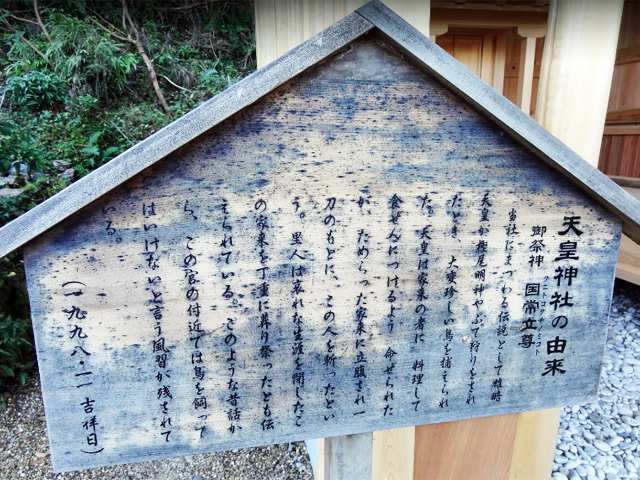 天皇神社の由来
御祭神 国常立尊
クニトコタチノミコト
当社にまつわる伝説として雄略
天皇が樫尾明神やぶで狩りをされ
たとき、大変珍しい鳥を捕えられ
た。天皇は家来の者に 料理して
食ぜんにつけるよう 命ぜられた
が、ためらった家来に立腹され一
刀のもとに、この人を斬ったとい
う。里人は哀れな生涯を閉じたこ
の家来を丁重に葬り祭ったとも伝
えられている。このような昔話か
ら、この宮の付近では鳥を飼って
はいけないと言う風習が残されて
いる。
(一九九八・一一 吉祥日)